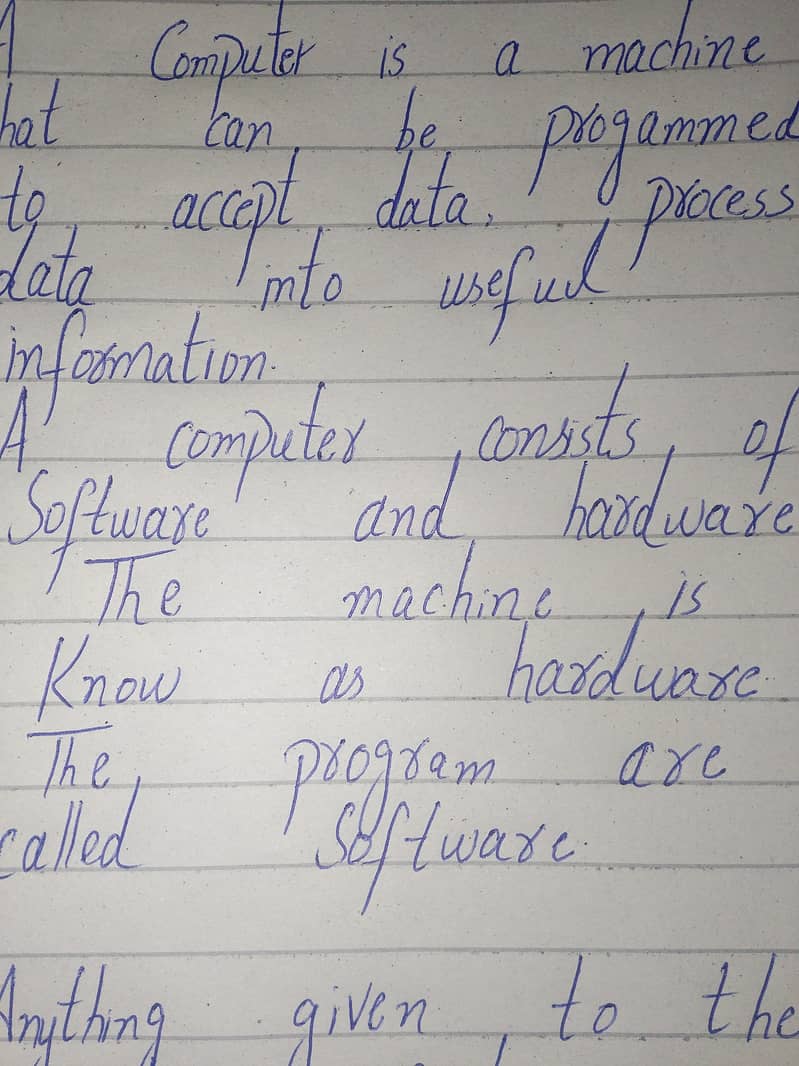 A Computer is a machine
hat can be progammed
to accept data, process
data into useful
information.
A computer consists of
Software and hardware
The machine is
Know as hardware.
The program are
called Software.
Anything given to the